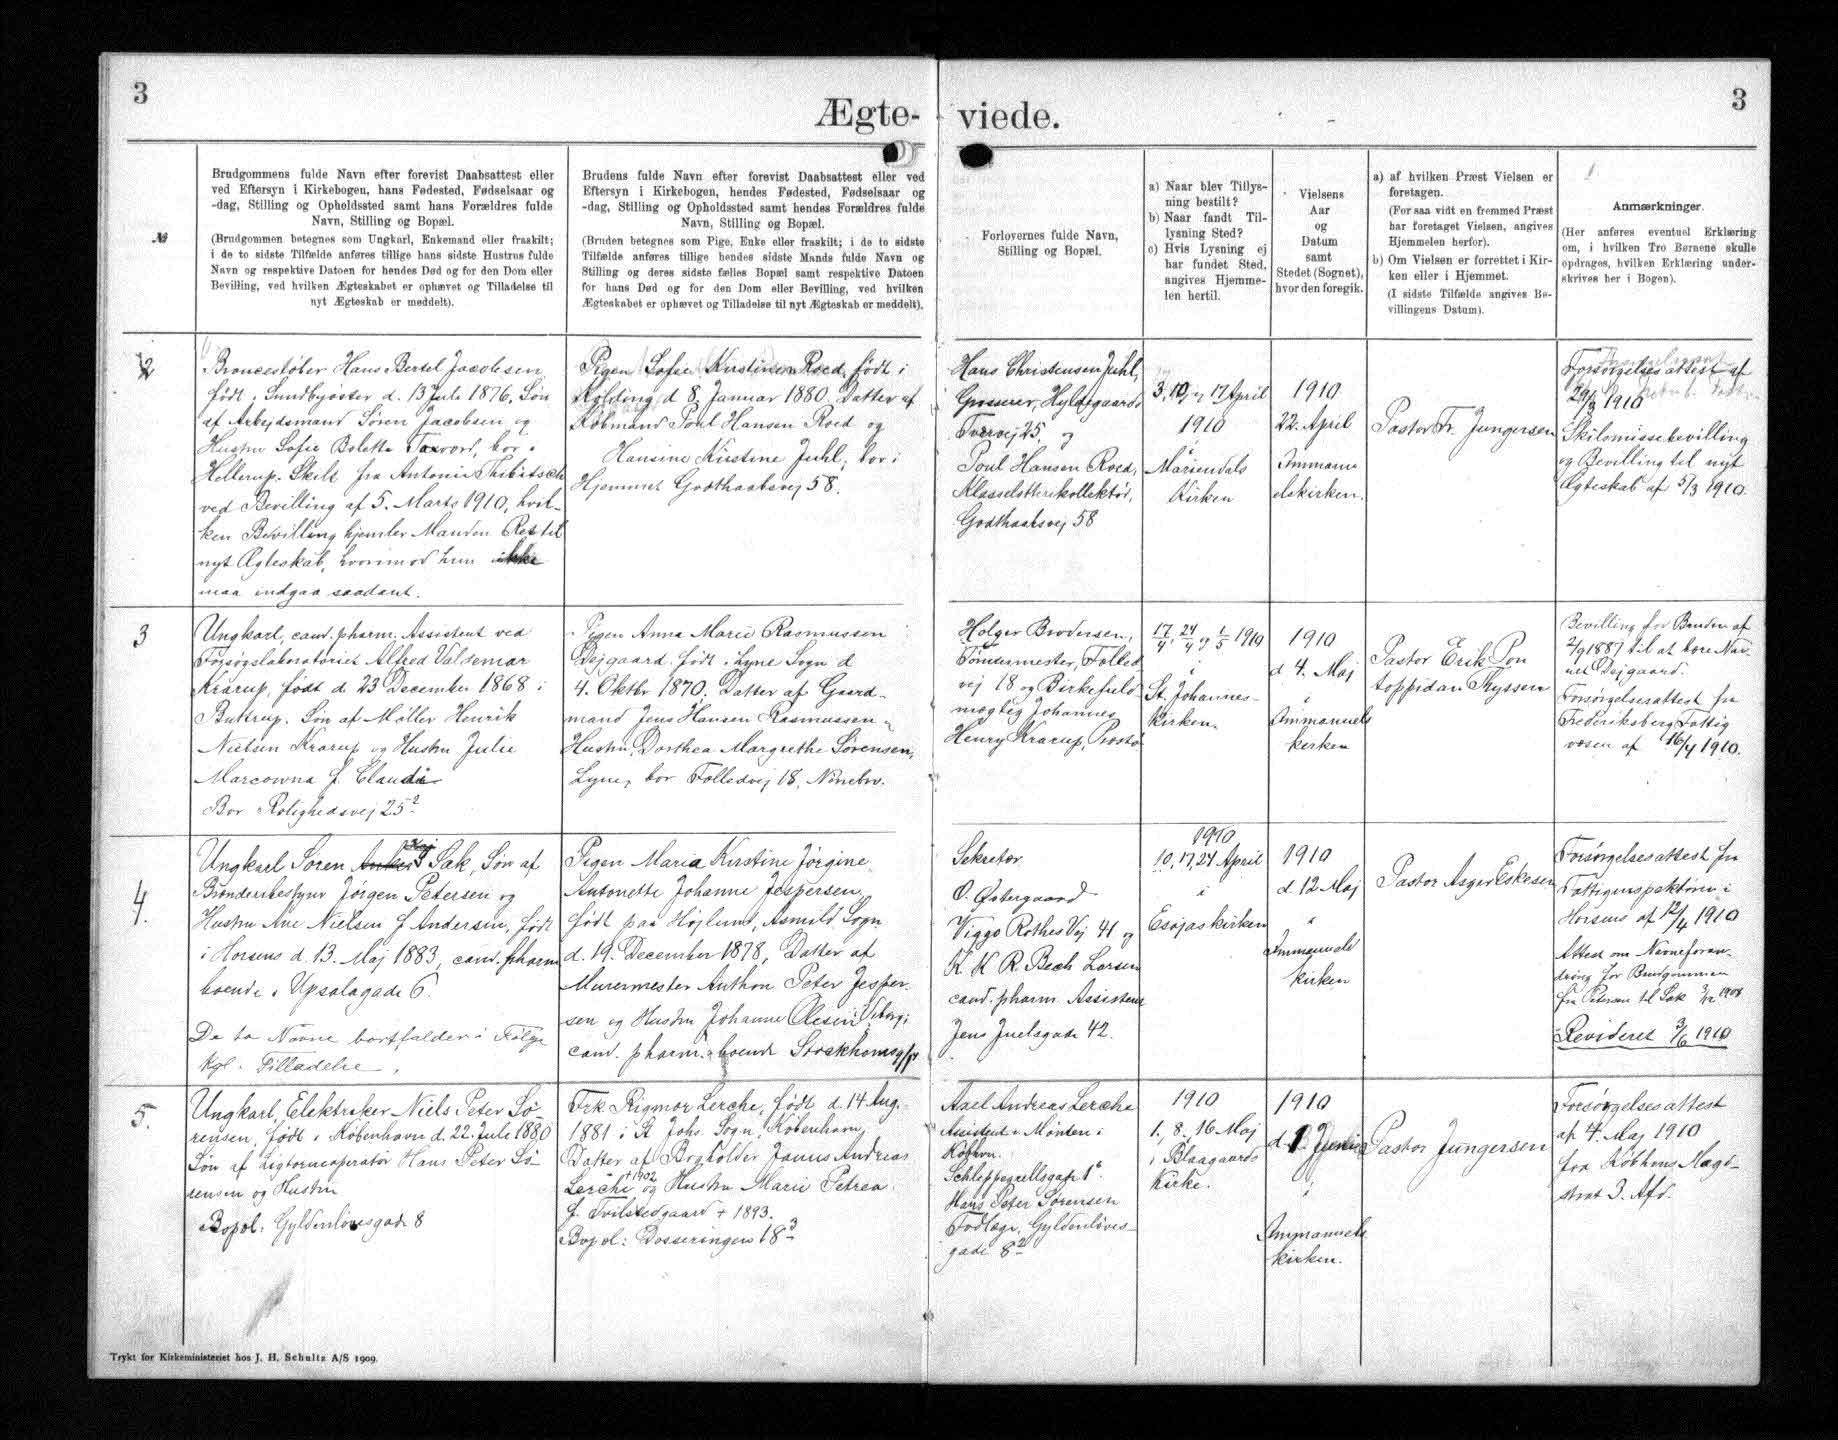 3
3
Ægte-
viede.
№
Brudgommens fulde Navn efter forevist Daabsattest eller
ved Eftersyn i Kirkebogen, hans Fødested, Fødselsaar og
-dag, Stilling og Opholdssted samt hans Forældres fulde
Navn, Stilling og Bopæl.
(Brudgommen betegnes som Ungkarl, Enkemand eller fraskilt;
i de to sidste Tilfælde anføres tillige hans sidste Hustrus fulde
Navn og respektive Datoen for hendes Død og for den Dom eller
Bevilling, ved hvilken Ægteskabet er ophævet og Tilladelse til
nyt Ægteskab er meddelt).
Brudens fulde Navn efter forevist Daabsattest eller ved
Eftersyn i Kirkebogen, hendes Fødested, Fødselsaar og
-dag, Stilling og Opholdssted samt hendes Forældres fulde
Navn, Stilling og Bopæl.
(Bruden betegnes som Pige, Enke eller fraskilt; i de to sidste
Tilfælde anføres tillige hendes sidste Mands fulde Navn og
Stilling og deres sidste fælles Bopæl samt respektive Datoen
for hans Død og for den Dom eller Bevilling, ved hvilken
Ægteskabet er ophævet og Tilladelse til nyt Ægteskab er meddelt).
Forlovernes fulde Navn,
Stilling og Bopæl.
a) Naar blev Tillys-
ning bestilt?
b) Naar fandt Til-
lysning Sted?
c) Hvis Lysning ej
har fundet Sted,
angives Hjemme-
len hertil.
Vielsens
Aar
og
Datum
samt
Stedet (Sognet),
hvor den foregik.
a) af hvilken Præst Vielsen er
foretagen.
(For saa vidt en fremmed Præst
har foretaget Vielsen, angives
Hjemmelen herfor).
b) Om Vielsen er forrettet i Kir-
ken eller i Hjemmet.
(I sidste Tilfælde angives Be-
villingens Datum).
Anmærkninger.
(Her anføres eventuel Erklæring
om, i hvilken Tro Børnene skulle
opdrages, hvilken Erklæring under-
skrives her i Bogen).
2
Broncestøber Hans Bertel Jacobsen
født i Sundbyøster d. 13 Juli 1876, Søn
af Arbejdsmand Søren Jacobsen og
Hustru Sofie Bolette, bor i
Hellerup. Skilt fra Antonie
ved Bevilling af 5. Marts 1910, hvil-
ken Bevilling hjemler Manden Ret til
nyt Ægteskab, hvorimod hun ikke
maa indgaa saadant.
Pigen Sofie Kirstine Roed, født i
Kolding d 8. Januar 1880. Datter af
Købmand Poul Hansen Roed og
Hansine Kirstine Juhl, bor i
Hjemmet Godthaabsvej 58.
Hans Christensen Juhl,
Grosserer, Hyldegaards
Tværvej 25, og
Poul Hansen Roed,
Klasselotterikollektør,
Godthaabsvej 58
3, 10, og 17 April
1910
i
Mariendals
Kirken
1910
22. April
Immanu
elskirken.
Pastor Fr. Jungersen
Forsørgelsesattest af
29/3 1910
Skilsmissebevilling
og Bevilling til nyt
Ægteskab af 5/3 1910.
3
Ungkarl, cand. pharm. Assistent ved
Forsøgslaboratoriet Alfred Valdemar
Krarup, født d 23 December 1868 i
Buttrup. Søn af Møller Henrik
Nielsen Krarup og Hustru Julie
Marcowna f. Claudi
Bor Rolighedsvej 25²
Pigen Anna Marie Rasmussen
Dejgaard, født i Lyne Sogn d
4. Oktbr 1870. Datter af Gaard-
mand Jens Hansen Rasmussen
Hustru, Dorthea Margrethe Sørensen,
Lyne, bor Folledvej 18,
Holger Brodersen,
Tøndermester, Folled
vej 18 og Birkefuld-
mægtig Johannes
Henry Krarup, Præstø
17/4, 24/4 og 1/5 1910
i
St. Johannes-
kirken.
1910
d 4. Maj
i
Immanuels
kirken
Pastor Erik Pon
toppidan Thyssen
Bevilling for Bruden af
2/9 1887 til at bære Nav-
net Dejgaard.
Forsørgelsesattest fra
Frederiksberg Fattig
væsen af 16/4 1910.
4.
Ungkarl Søren Kaj Sak, Søn af
Brønderbestyrer Jørgen Petersen og
Hustru Ane Nielsen f Andersen, født
i Horsens d. 13. Maj 1883, cand. pharm
boende i Upsalagade 6.
De to Navne bortfalder i Følge
kgl. Tilladelse.
Pigen Maria Kirstine Jørgine
Antonette Johanne Jespersen,
født paa Højlund, Asmild Sogn
d. 19. December 1878, Datter af
Murermester Anthon Peter Jesper-
sen og Hustru Johanne Olesen i Viborg,
cand. pharm. boende
Sekretær
O. Østergaard
Viggo Rothes Vej 41 og
K. K. R. Bech Larsen
cand. pharm. Assistent
Jens Juelsgade 42.
1910
10, 17, 24 April
i
Esajas kirken
1910
d. 12 Maj
i
Immanuels
kirken
Pastor Asger Eskesen
Forsørgelsesattest fra
Fattiginspektøren i
Horsens af 12/4 1910
Attest om Navneforan-
dring for Brudgommen
fra Petersen til Sak 1908
Revideret 3/6 1910
5.
Ungkarl, Elektriker Niels Peter Sø-
rensen, født i København d. 22. Juli 1880
Søn af Ligtornsoperatør Hans Peter Sø-
rensen og Hustru
Bopæl: Gyldenløvesgade 8
Frk Rigmor Lerche, født d. 14 Aug.
1881 i St Johs. Sogn, København,
Datter af Bogholder Janus Andreas
Lerche † 1902 og Hustru Marie Petrea
f. Tvilstedgaard † 1893.
Bopæl: Dosseringen 18³
Axel Andreas Lerche
Assistent v. Mønten i
Købhvn.
Schleppegrellsgade 1⁴
Hans Peter Sørensen
Fodlæge, Gyldenløves-
gade 8²
1910
1., 8., 16 Maj
i Blaagaards
Kirke.
1910
d. 1 Juni
i
Immanuels
kirken.
Pastor Jungersen
Forsørgelsesattest
af 4. Maj 1910
fra Købhvns Magi-
strat 3. Afd.
Trykt for Kirkeministeriet hos J. H. Schultz A/S 1909.